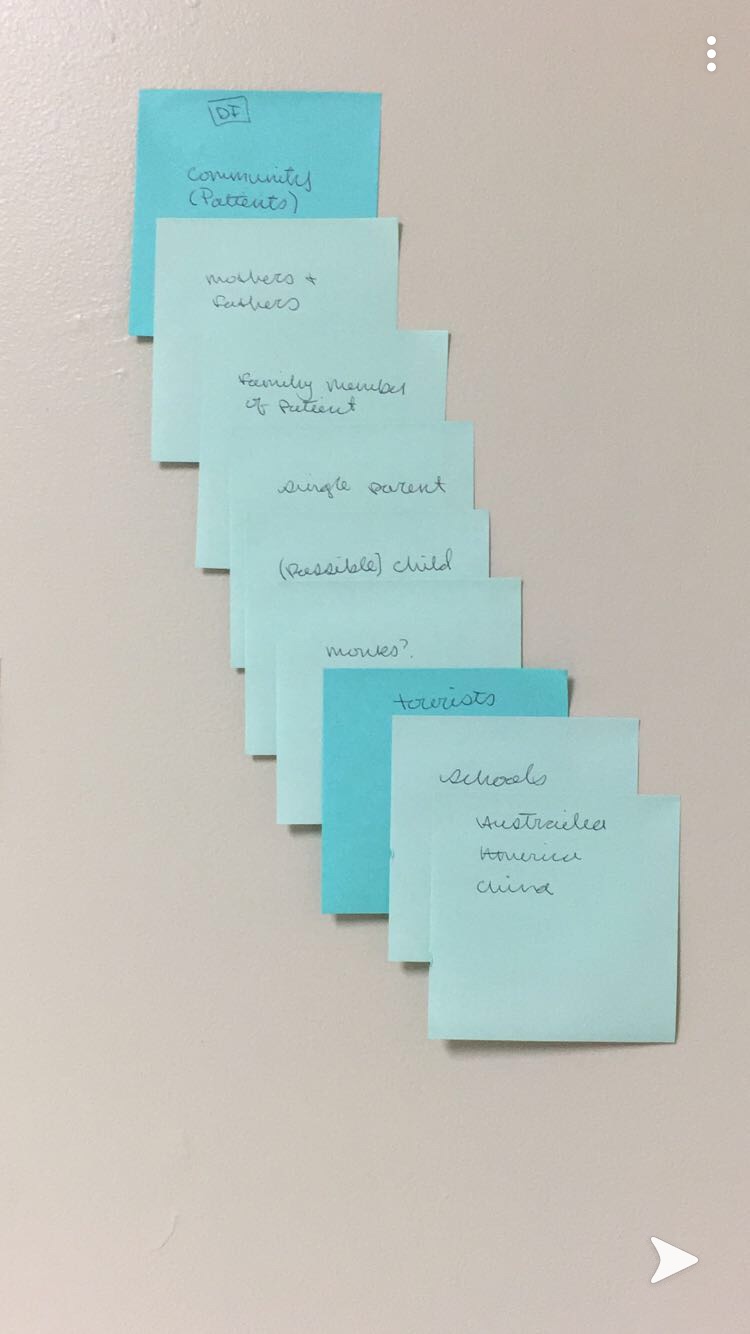 DI
community
(Patients)
mothers +
fathers
family member
of patient
single parent
(possible) child
monks?
tourists
schools
Austrailea
America
China